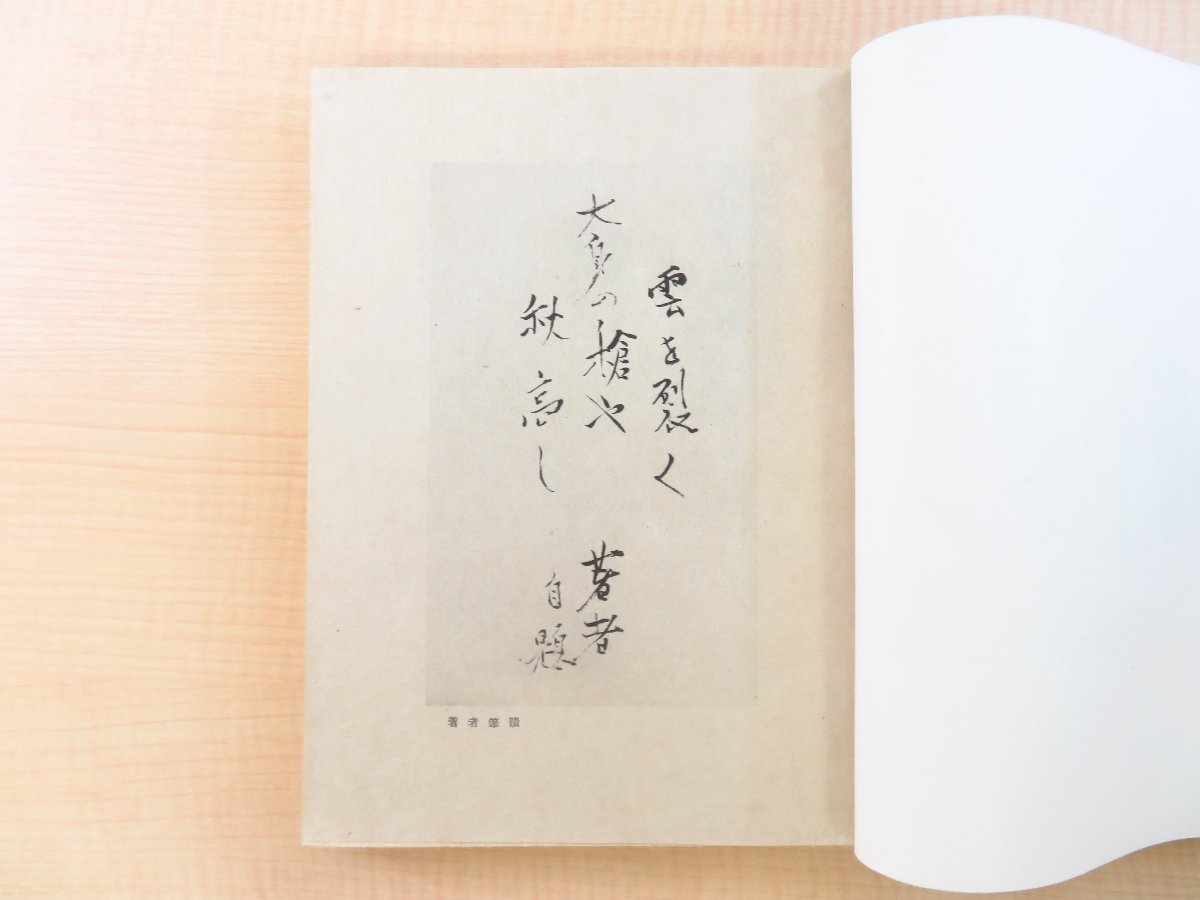 雲を裂く
大身の槍や
秋高し
著者
自題
著者筆蹟